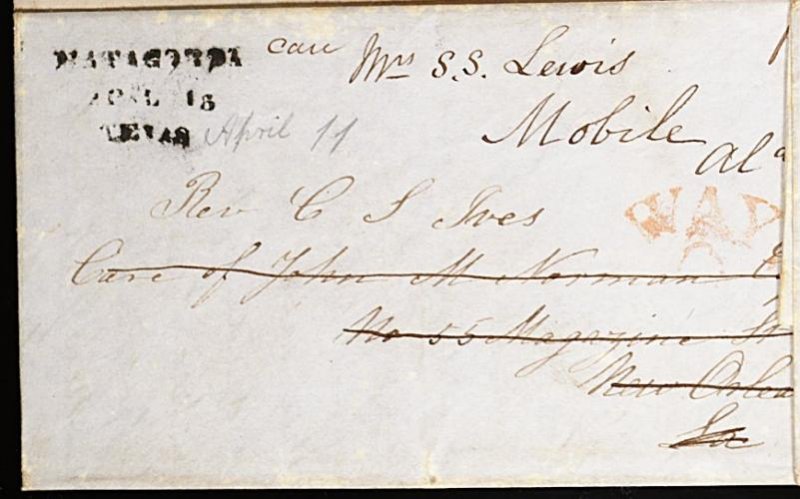 MATAGORDA
APRIL 18
TEXAS
April 11
care Mrs S.S. Lewis
Mobile
Ala
WAY
Rev C S Ives
Care of John M Norman
No 55 Magazine St
New Orlea
La